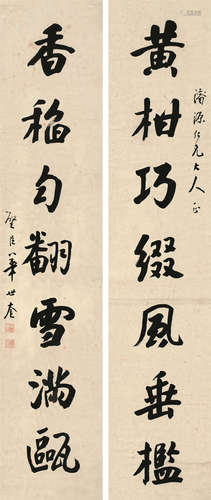 濬源仁兄大人正
黄柑巧綴風垂檻
香稻勻翻雪滿甌
璧臣華世奎